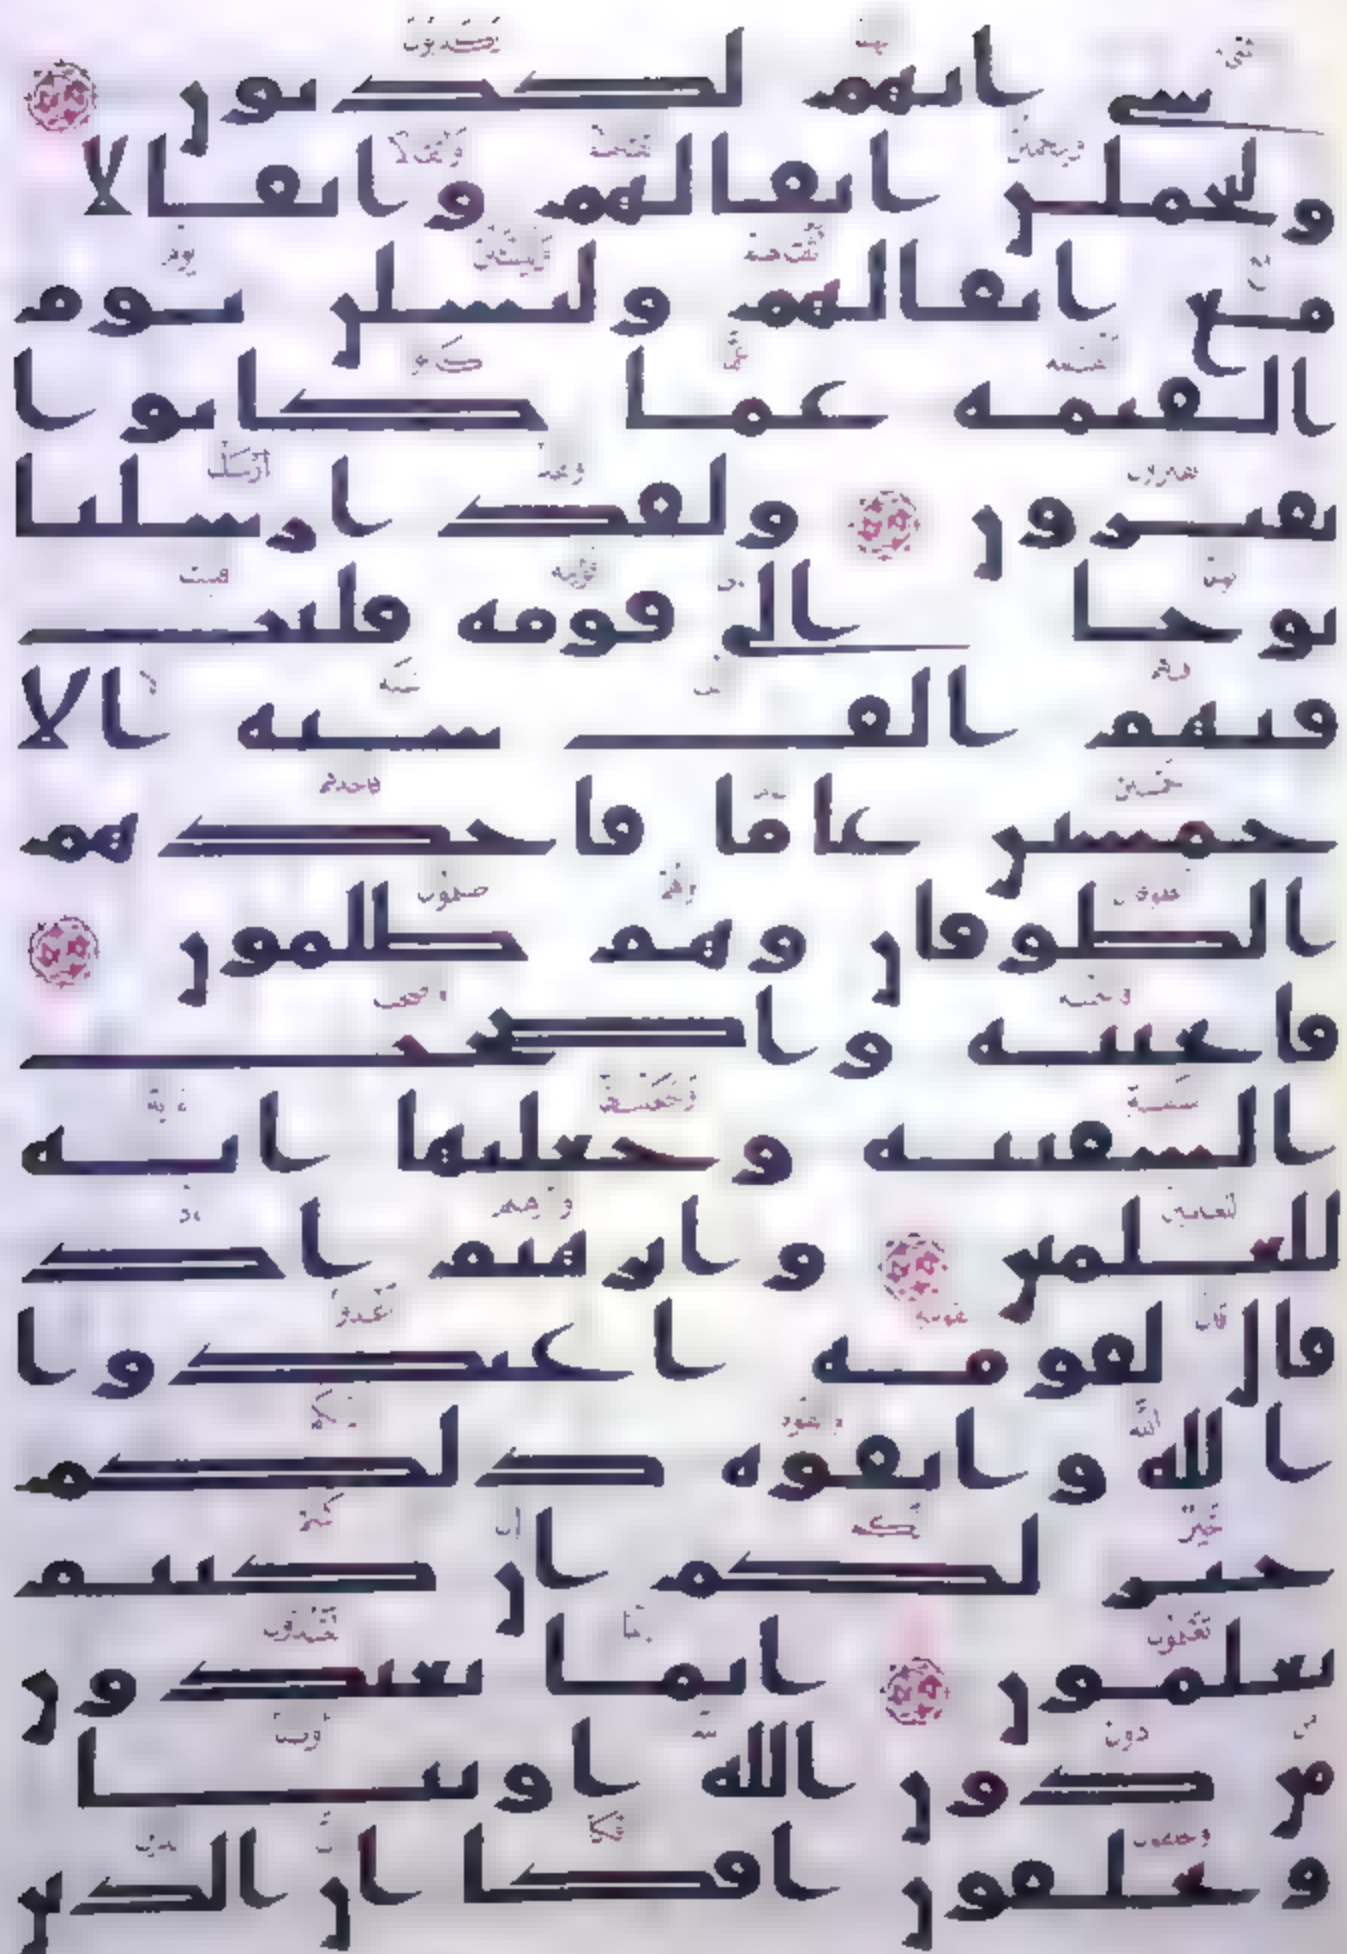 شى انهم لكذبون
وليحملن اثقالهم واثقالا
مع اثقالهم وليسلن يوم
القيمه عما كانوا
يفترون ولقد ارسلنا
نوحا الى قومه فلبث
فيهم الف سنه الا
خمسين عاما فاخذهم
الطوفان وهم ظلمون
فانجينه واصحب
السفينه وجعلنها ايه
للعلمين وابرهيم اذ
قال لقومه اعبدوا
الله واتقوه ذلكم
خير لكم ان كنتم
تعلمون انما تعبدون
من دون الله اوثنا
وتخلقون افكا ان الذين